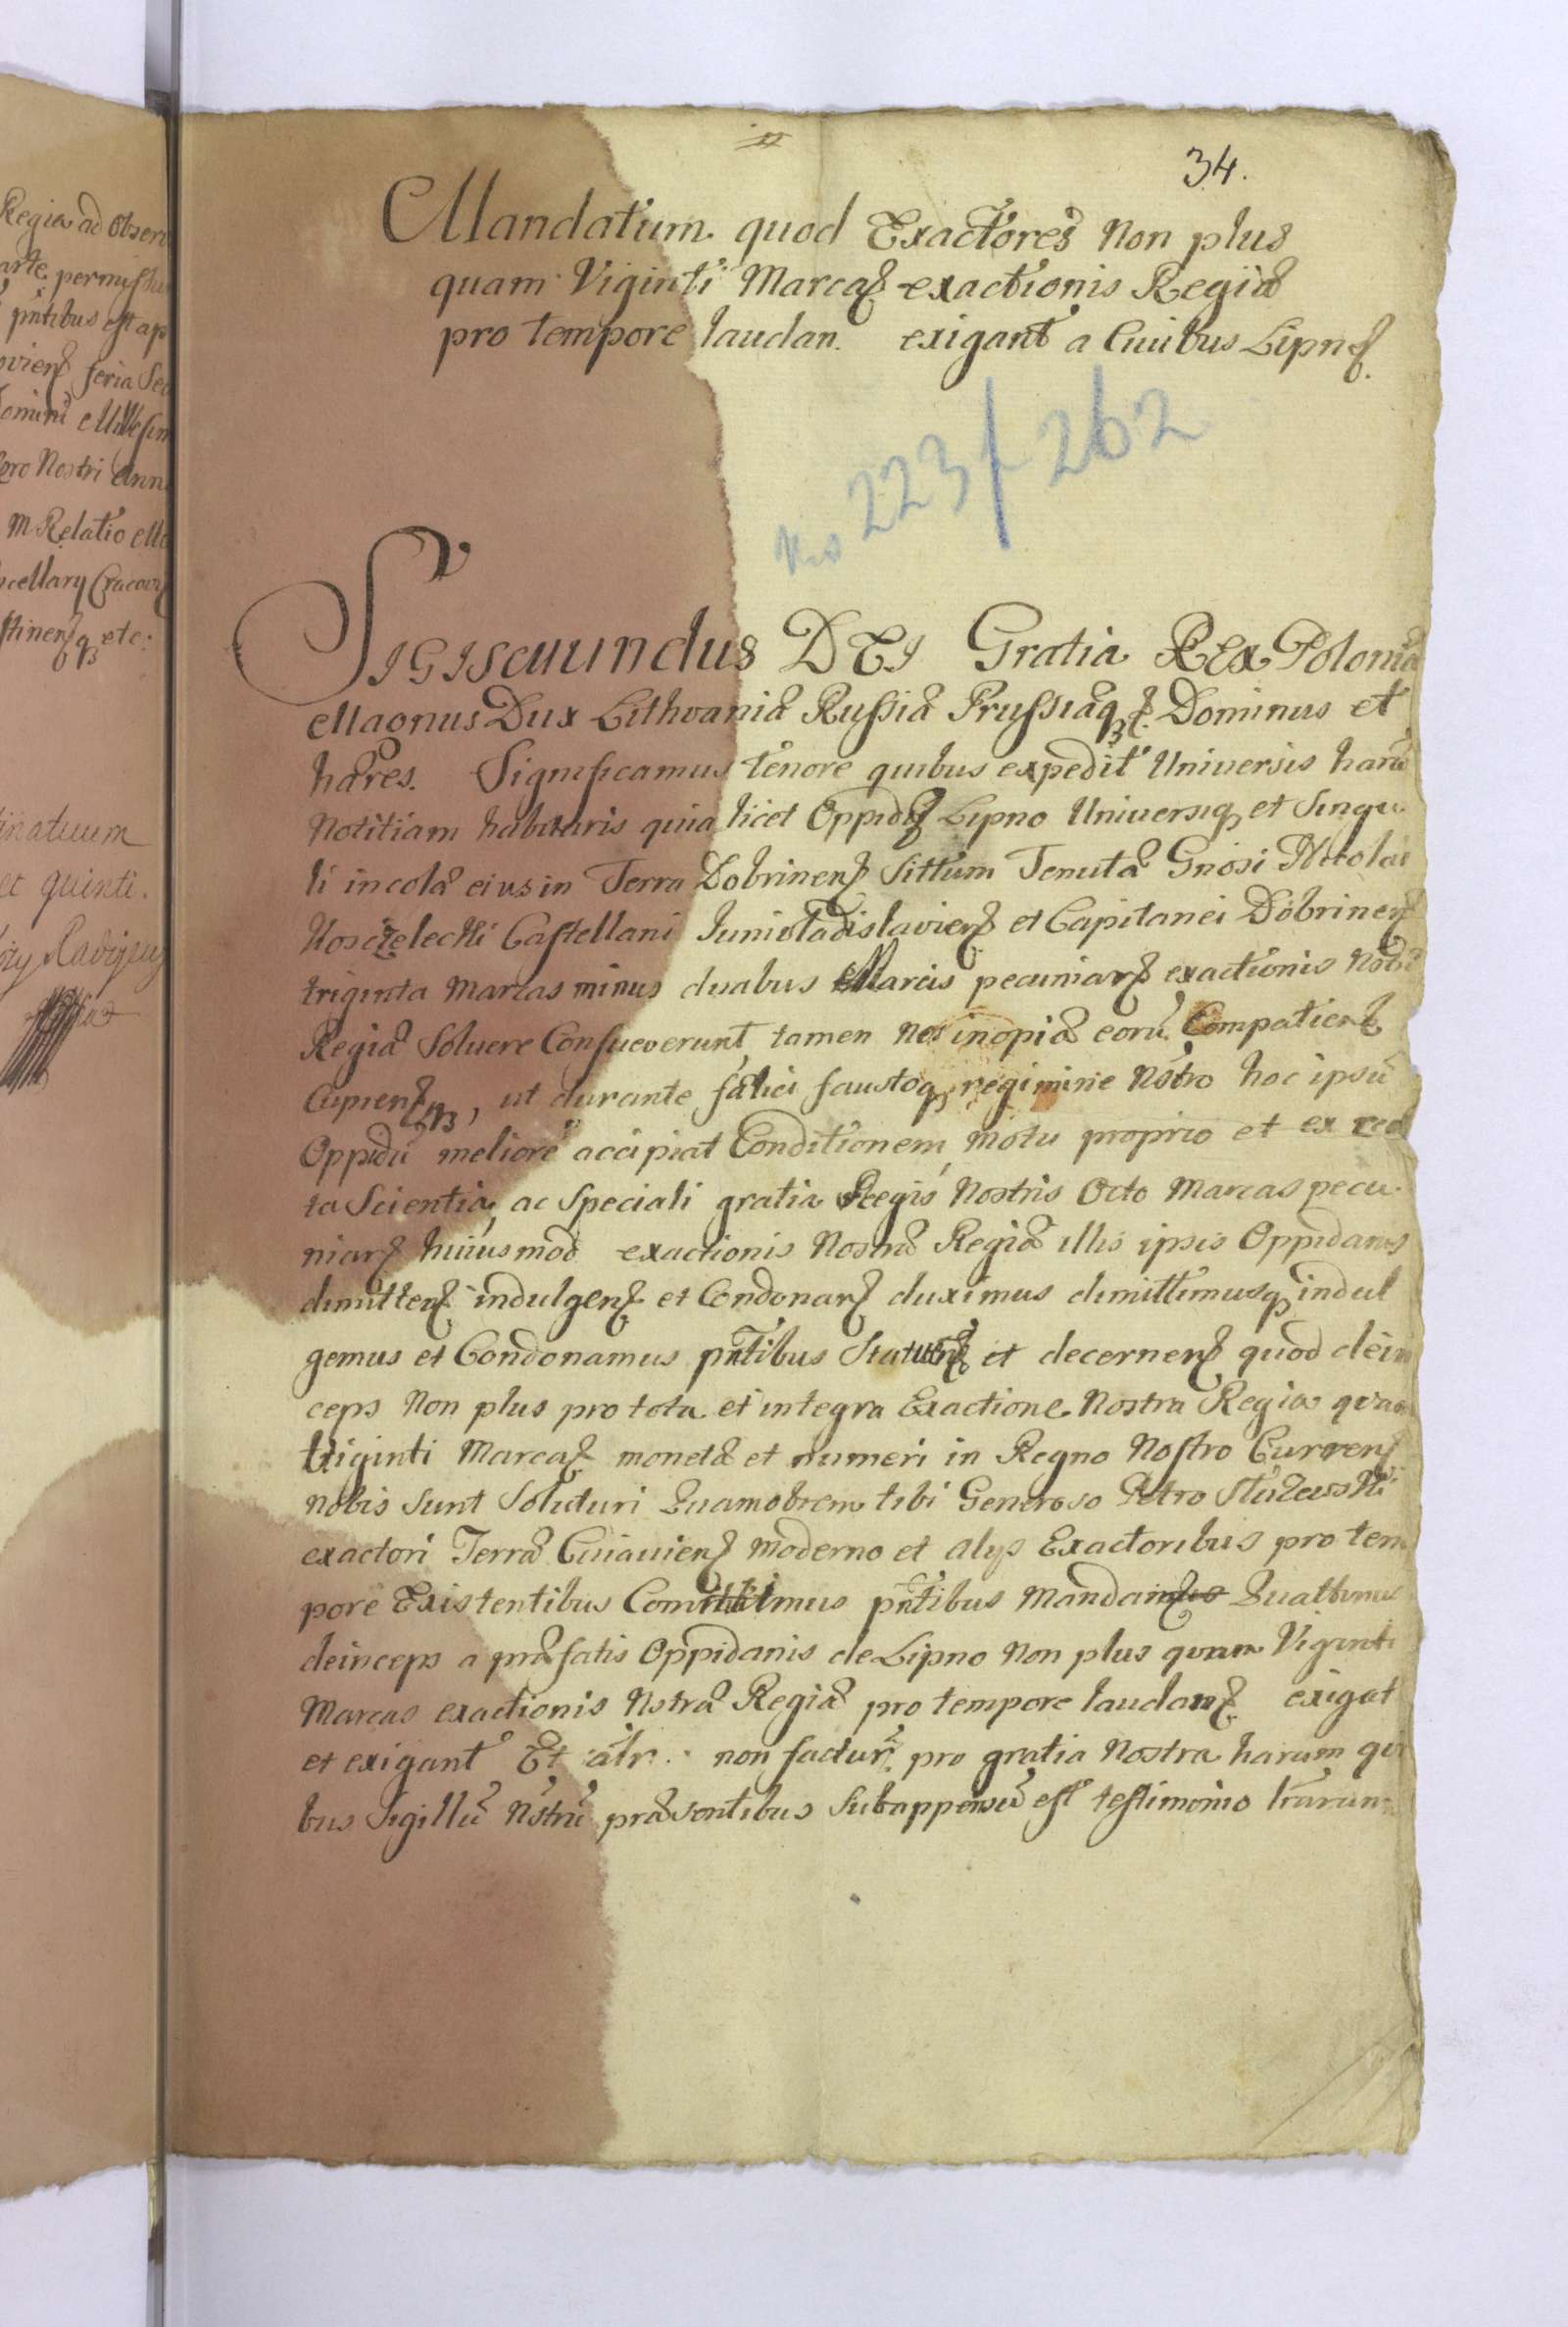 Regia ad Obser
arte permissu
pntibus est ap
oviens feria Sec
Domini Millesim
pro Nostri Ann
M Relatio
ncellary Cracovien
stinensq etc:
et quinti.
34.
Mandatum quod Exactores Non plus
quam Viginti Marcas exactionis Regiæ
pro tempore laudan. exigant a Civibus Lipnen.
No 223/262
Sigismundus DEI Gratia REx Poloniæ
Magnus Dux Lithvaniæ Russiæ Prussiæq Dominus et
hæres. Significamus tenore quibus expedit Universis harū
Notitiam habituris quia licet Oppidū Lipno Universiq et Singu
li incolæ eius in Terra Dobrinens Sittum Tenutæ Gnosi Nicolai
Kosczelecki Castellani Junivladislaviens et Capitanei Dobrinens
triginta Marcas minus duabus Marcis pecuniars exactionis
Regiæ Soluere Consueverunt, tamen Nos inopiæ eorū Compatiens
Cupiensq, ut durante fælici faustoq regimine Nstro hoc ipsū
Oppidū meliorē accipiat Conditionem, motu proprio et ex cer
ta Scientia, ac Speciali gratia Regis Nostris Octo Marcas pecu
niars huiusmod exactionis Nostræ Regiæ illis ipsis Oppidanis
dimittens indulgens et Condonars duximus dimittimusq indul
gemus et Condonamus pntibus Statuens et decernens quod dein
ceps Non plus pro tota et integra Exactione Nostra Regia quam
Viginti Marcas monetæ et numeri in Regno Nostro Currens
nobis Sunt Soluturi Quamobrem tibi Generoso Petro Służewski
exactori Terræ Cuiaviens moderno et alys Exactoribus pro tem
pore Existentibus Committimus pntibus Mandans Quattenus
deinceps a præfatis Oppidanis de Lipno Non plus quam Viginti
Marcas exactionis Nstræ Regiæ pro tempore laudans exigat
et exigant Et alr. non factur. pro gratia Nostra harum qui
bus Sigillū Nstrū præsentibus Subappensū est testimonio lrarum